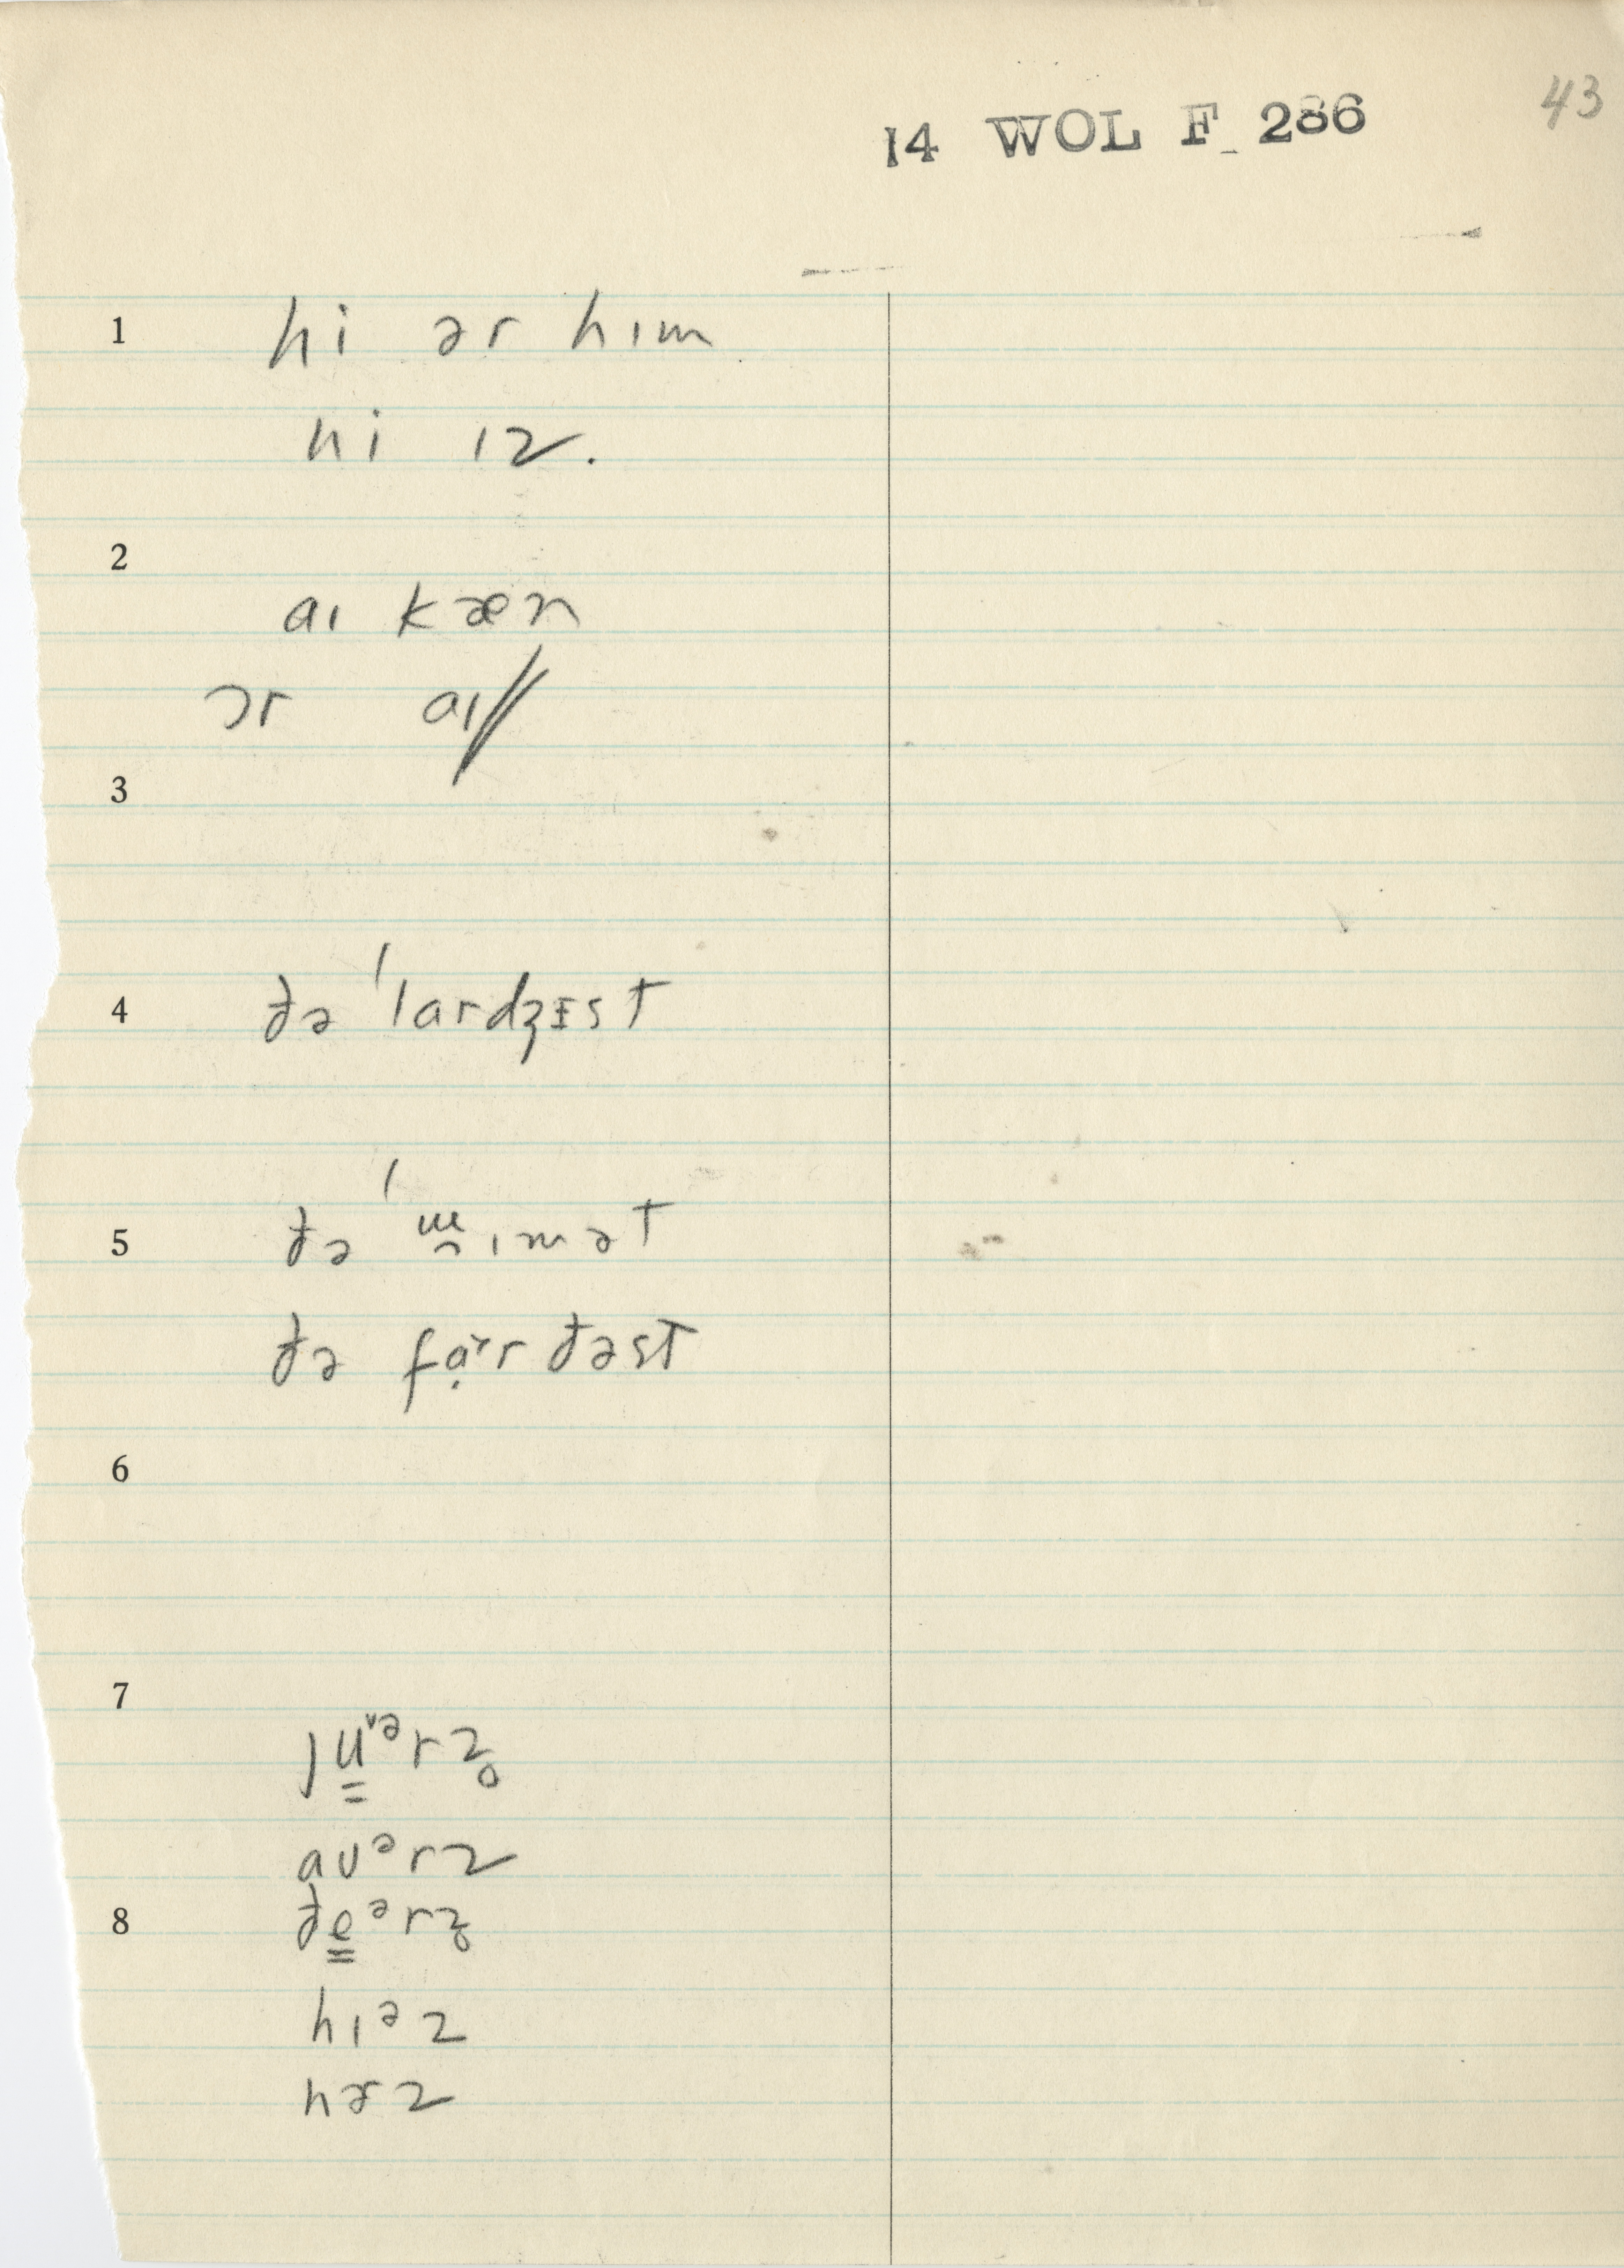 43
14 WOL F 286
1 hi ər hɪm
hi ɪz.
2
aɪ kæn
ɔr aɪ//
3
4 ðə ˈlardʒɪst
5 ðə ɪmət
ðə fa̤r ðəst
6
7
ju̳ᵛᵊrz̥
aʊᵊrz
8 ðe̳ᵊrz̥
hɪᵊz
hɚz